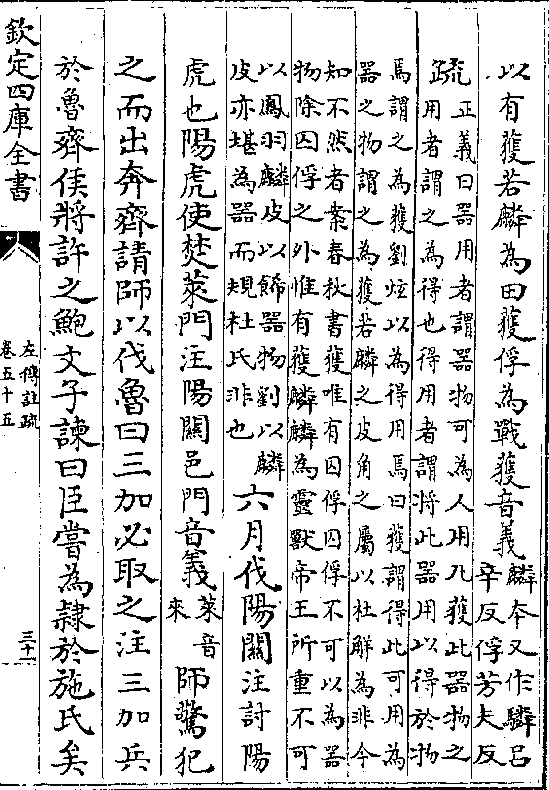 以有獲若麟為田獲俘為戰獲音義麟本又作驎呂
辛反俘芳夫反
疏正義曰器用者謂器物可為人用凡獲此器物之
用者謂之為得也得用者謂將此器用以得於物
焉謂之為獲劉炫以為得用焉曰獲謂得此可用為
器之物謂之為獲若麟之皮角之屬以杜解為非今
知不然者案春秋書獲唯有囚俘囚俘不可以為器
物除囚俘之外惟有獲麟麟為靈獸帝王所重不可
以鳳羽麟皮以飾器物劉以麟
皮亦堪為器而規杜氏非也
六月伐陽關注討陽
虎也陽虎使焚萊門注陽關邑門音義萊音
來
師驚犯
之而出奔齊請師以伐魯曰三加必取之注三加兵
於魯齊侯將許之鮑文子諫曰臣嘗為隸於施氏矣
欽定四庫全書
左傳註疏
卷五十五
三十一